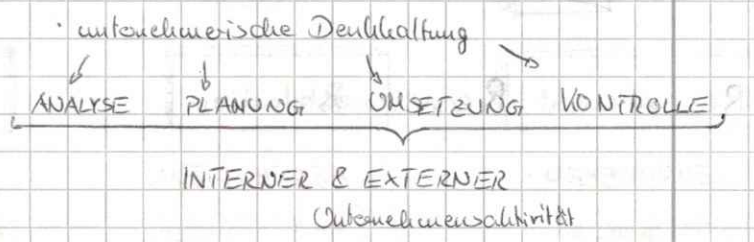 · unternehmerische Denkhaltung
ANALYSE PLANUNG UMSETZUNG KONTROLLE
INTERNER & EXTERNER
Unternehmensaktivität